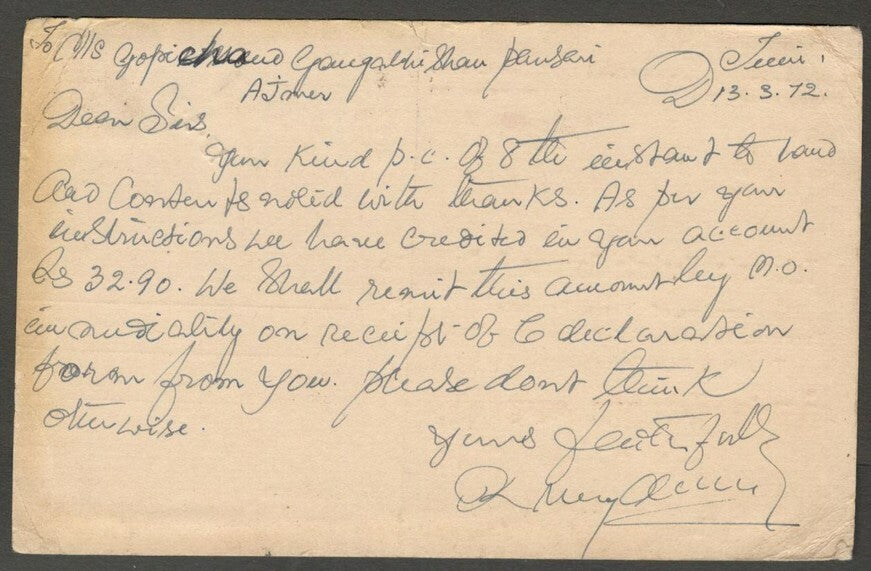 To M/s Gopichand Gangabishan Pansari
Ajmer
D 13.3.72.
Dear Sirs,
Your Kind p.c. of 8 th instant to hand
and Contents noted with thanks. As per your
instructions we have credited in your account
Rs 32.90. We Shall remit this amount by M.O.
immediately on receipt of C declaration
form from you. please dont think
otherwise.
Yours faithfully